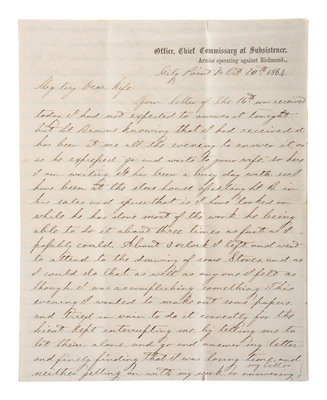 Office, Chief Commissary of Subsistence,
Armies operating against Richmond,
City Point Va Oct 20th 1864
My very Dear Wife
Your letter of the 16th was received
today I had not expected to answer it tonight
but Lt Brown knowing that I had received it
has been at me all the evening to answer it, or
as he expressed go and write to your wife so here
I am writing. It has been a busy day with us I
have been at the store house assisting Lt B in
his sales and issues that is I have looked on
while he has done most of the work he being
able to do it about three times as fast as I
possibly could. About 3 o'clock I left and went
to attend to the drawing of some Stores and as
I could do that as well as any one I felt as
though I was accomplishing something This
evening I wanted to make out some papers
and tried in vain to do it correctly for the
Lieut kept interrupting me by telling me to
let them alone and go and answer my letter
and finely finding that I was losing time and
neither getting on with my work or answering my letter